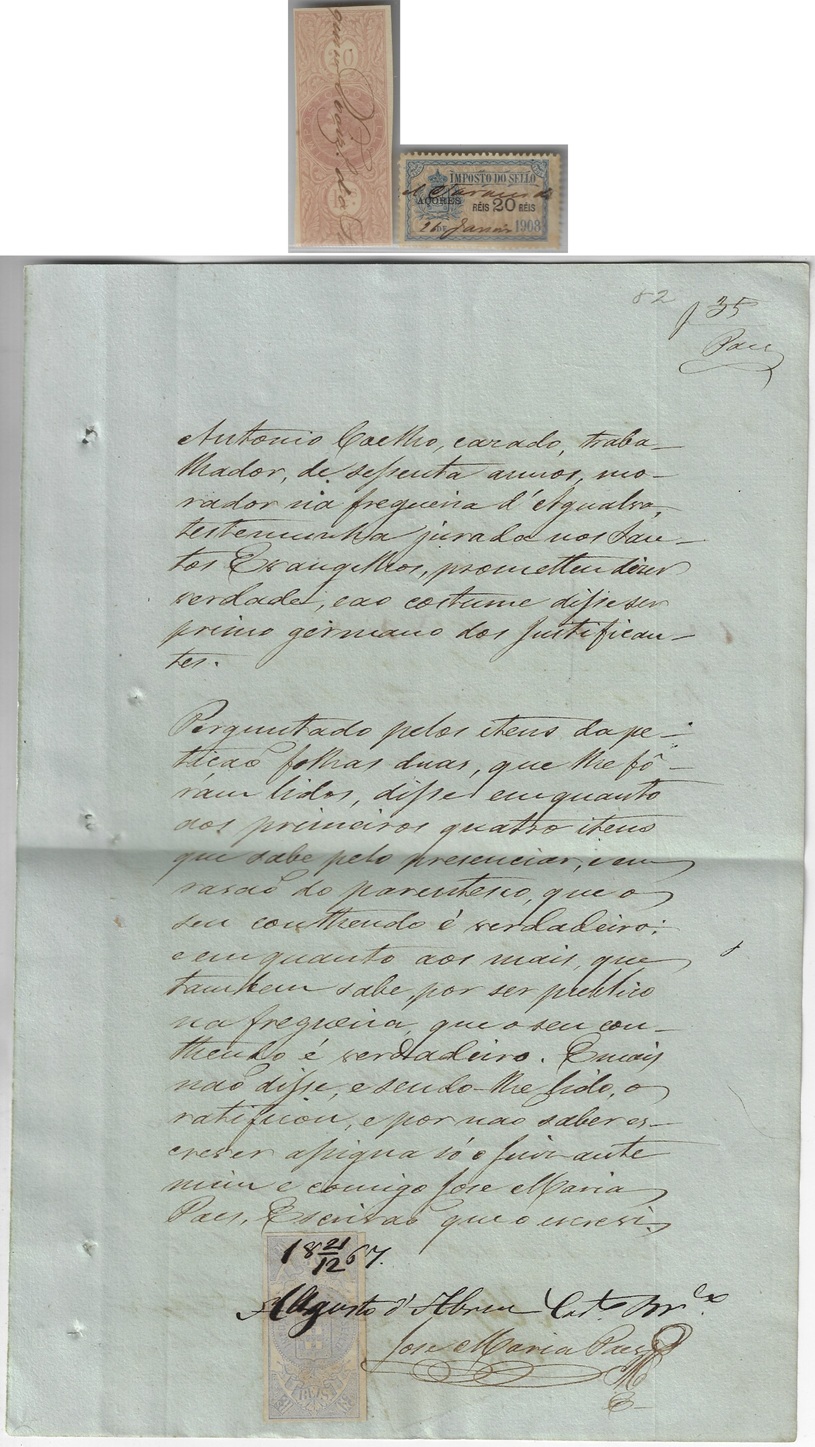 20
IMPOSTO DO SELLO
AÇORES RÉIS 20 RÉIS
26 DE Janrº 1903
82
f 35
Paes
Antonio Coelho, cazado, traba-
lhador, de sessenta annos, mo-
rador na freguezia d'Agualva,
testemunha jurada nos San-
tos Evangelhos, prometteu dizer
verdade, e ao costume disse ser
primo germano dos Justifican-
tes.
Perguntado pelos itens da pe-
tição folhas duas, que lhe fô-
rám lidos, disse emquanto
aos primeiros quatro itens
que sabe pelo presenciar, e em
rasão do parentesco, que o
seu contheudo é verdadeiro;
e emquanto aos mais, que
tambem sabe, por ser publico
na freguezia, que o seu con-
theudo é verdadeiro. E mais
não disse, e sendo-lhe lido, o
ratificou, e por não saber es-
crever assigna só o Juiz ante
mim e comigo Jose Maria
Paes, Escrivão que o escrevi,
18 21/12 67.
Augusto d'Abreu
Jose Maria Paes